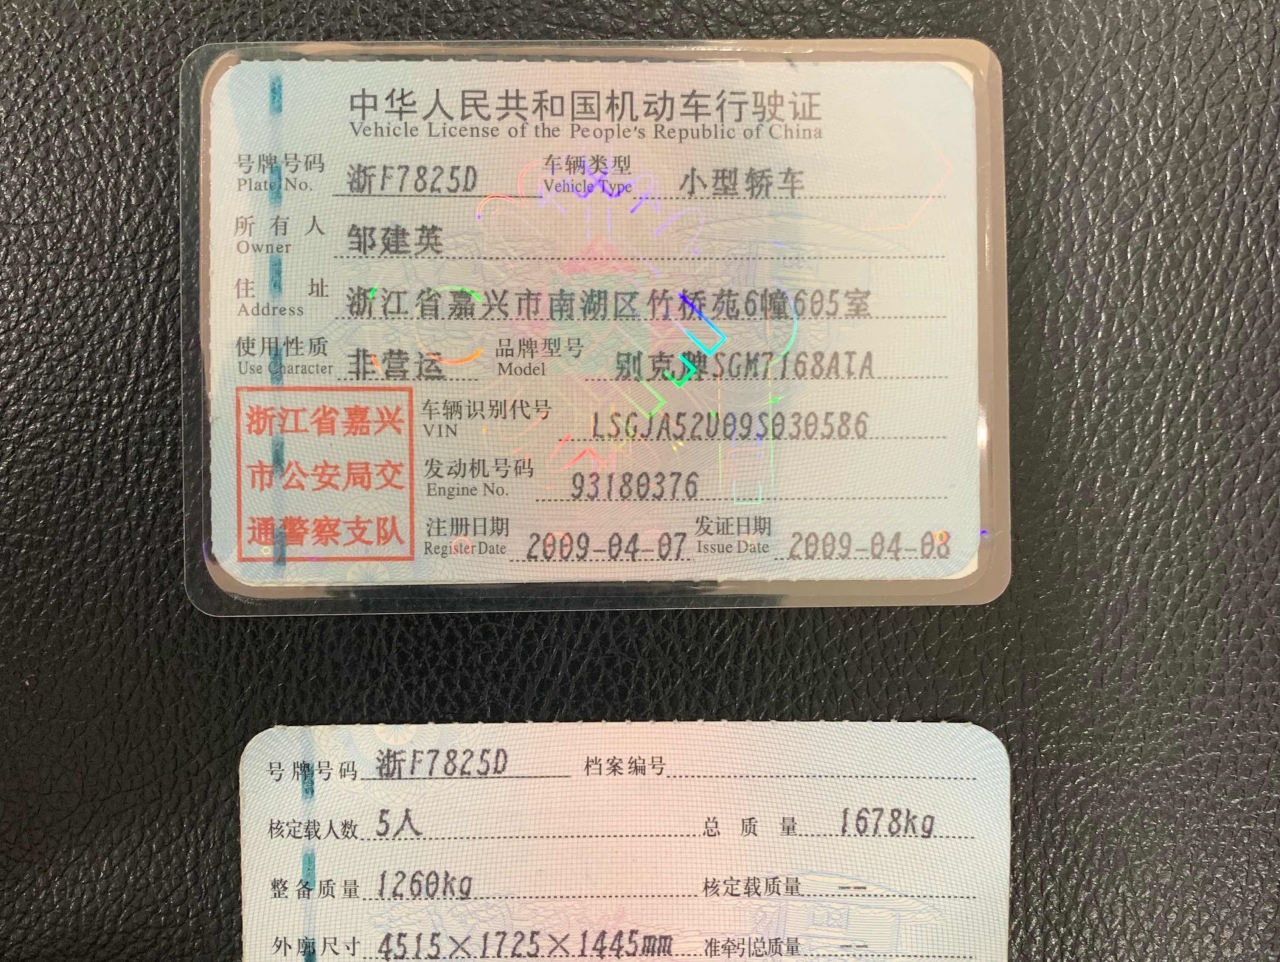 中华人民共和国机动车行驶证
Vehicle License of the People's Republic of China
号牌号码 浙F7825D 车辆类型 小型轿车
Plate No. Vehicle Type
所有人 邹建英
Owner
住址 浙江省嘉兴市南湖区竹桥苑6幢605室
Address
使用性质 非营运 品牌型号 别克牌SGM7168ATA
Use Character Model
浙江省嘉兴
市公安局交
通警察支队
车辆识别代号 LSGJA52U09S030586
VIN
发动机号码 93180376
Engine No.
注册日期 2009-04-07 发证日期 2009-04-08
Register Date Issue Date
号牌号码 浙F7825D 档案编号
核定载人数 5人 总质量 1678kg
整备质量 1260kg 核定载质量 --
外廓尺寸 4515×1725×1445mm 准牵引总质量 --